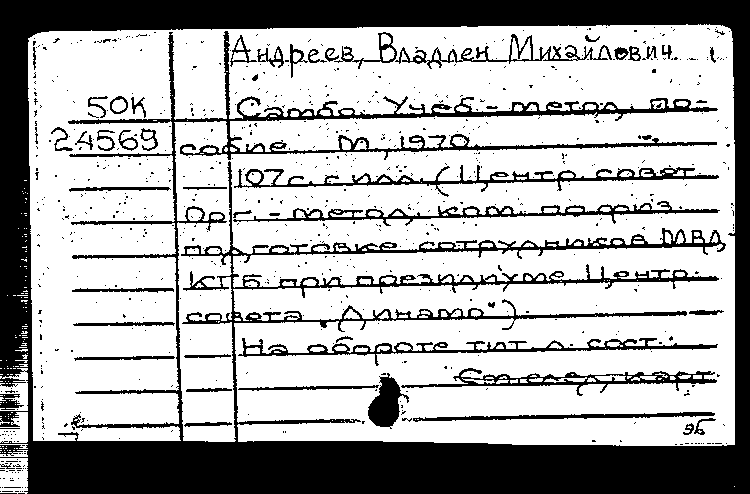 Андреев, Владлен Михайлович.
50К
24569
Самбо. Учеб.-метод. по-
собие. М., 1970.
107с. с илл. (Центр. совет.
Орг.-метод. ком. по физ.
подготовке сотрудников МВД,
КГБ при президиуме Центр.
совета "Динамо").
На обороте тит. л. сост.:
См. след. карт.
эб